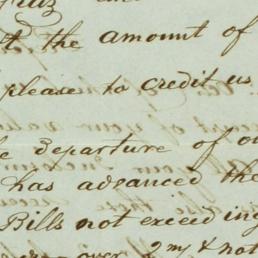 t the amount of
please to credit us
departure of
has advanced the
Bills not exceeding
over 2 m/ & not